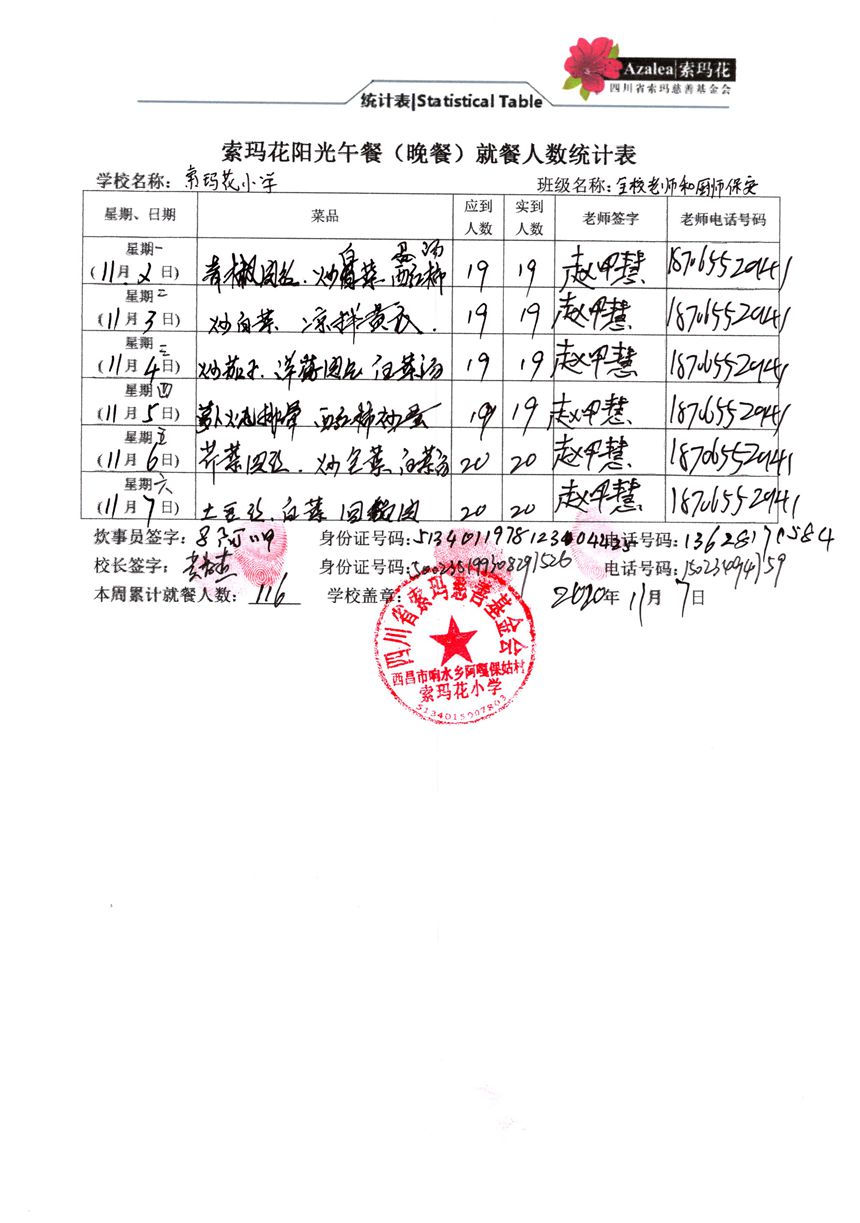 Azalea|索玛花
四川省索玛慈善基金会
统计表|Statistical Table
索玛花阳光午餐（晚餐）就餐人数统计表
学校名称：索玛花小学 班级名称：全校老师和厨师保安
星期、日期 菜品 应到人数 实到人数 老师签字 老师电话号码
星期一
(11月2日) 青椒肉丝．炒白菜 西红柿蛋汤 19 19 赵甲慧 18706552941
星期二
(11月3日) 炒白菜、凉拌黄瓜． 19 19 赵甲慧 18706552941
星期三
(11月4日) 炒茄子．洋葱肉片 白菜汤 19 19 赵甲慧 18706552941
星期四
(11月5日) 萝卜烧排骨 西红柿炒蛋 19 19 赵甲慧 18706552941
星期五
(11月6日) 芹菜肉丝．炒包菜．白菜汤 20 20 赵甲慧 18706552941
星期六
(11月7日) 土豆丝．白菜 回锅肉 20 20 赵甲慧 18706552941
炊事员签字： 身份证号码： 电话号码：
校长签字： 身份证号码： 电话号码：
本周累计就餐人数：116 学校盖章： 2020年11月7日
四川省索玛慈善基金会
西昌市响水乡阿嘎保姑村
索玛花小学
5134015007803